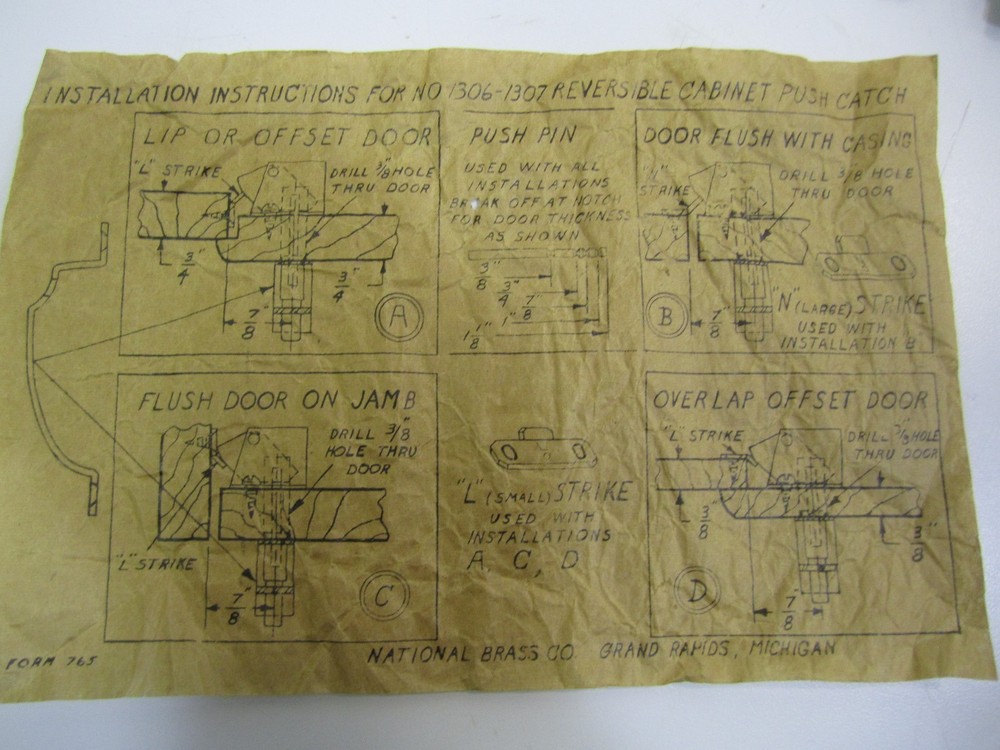 INSTALLATION INSTRUCTIONS FOR NO 1306-1307 REVERSIBLE CABINET PUSH CATCH
LIP OR OFFSET DOOR
"L" STRIKE
DRILL 3/8" HOLE
THRU DOOR
3/4"
3/4"
7/8"
A
PUSH PIN
USED WITH ALL
INSTALLATIONS
BREAK OFF AT NOTCH
FOR DOOR THICKNESS
AS SHOWN
3/8"
3/4"
7/8"
1"
1 1/8"
DOOR FLUSH WITH CASING
STRIKE
DRILL 3/8 HOLE
THRU DOOR
7/8"
B
"N" (LARGE) STRIKE
USED WITH
INSTALLATION B
FLUSH DOOR ON JAMB
DRILL 3/8"
HOLE THRU
DOOR
"L" STRIKE
7/8"
C
"L" (SMALL) STRIKE
USED WITH
INSTALLATIONS
A, C, D
OVERLAP OFFSET DOOR
"L" STRIKE
DRILL 3/8 HOLE
THRU DOOR
3/8"
3/8"
7/8"
D
FORM 765
NATIONAL BRASS CO. GRAND RAPIDS, MICHIGAN